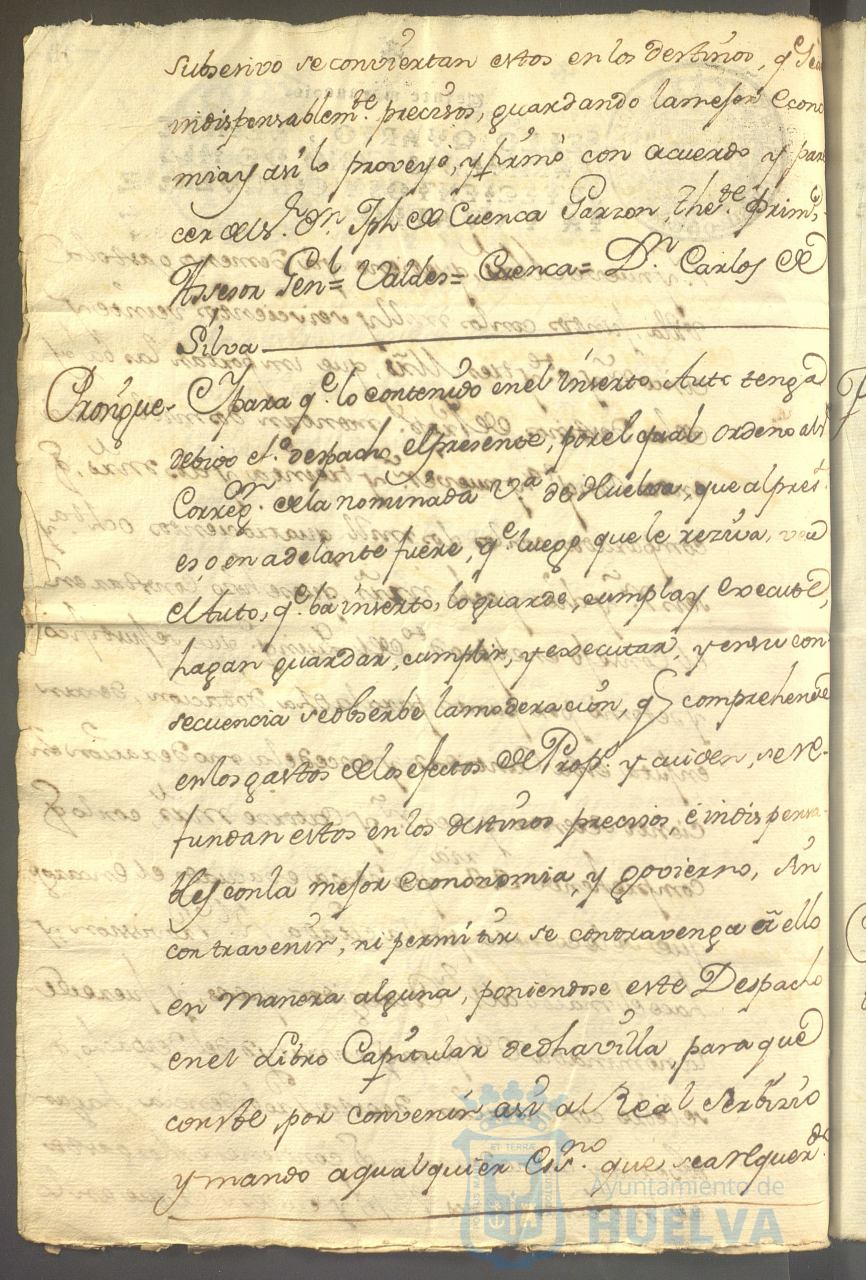 subsesivo se conviertan estos en los destinos, q.e sea
indispensablem.te precisos, guardando la mejor econo
mia y asi lo proveyó, y firmó con acuerdo y pare
cer del S.r D.n Jph de Cuenca Garzon, The.te prim.o
Asesor Gen.l = Valdes = Cuenca = D.n Carlos de
Silva
Pronigue- Y para q.e lo contenido en el inserto Auto tenga
debido ef.o despacho el presente, por el qual ordeno al S.r
Correg.or de la nominada V.a de Huelva que al pres.te
es, o en adelante fuere, q.e luego que le reziva, vea
el Auto, q.e ba inserto, lo guarde, cumpla y execute,
hagan guardar, cumplir, y executar, y en su con
secuencia se obserbe la moderacion, q.e comprehende
en los gastos de los efectos de Prop.s y cuiden, se re-
fundan estos en los destinos precisos é indispensa-
bles con la mejor econonomia, y govierno, sin
contravenir, ni permitir se contravenga à ello
en manera alguna, poniendose este Despacho
en el Libro Capitular de dha villa, para que
conste, por convenir asi al Real Serbizio
y mando a qualquier Ess.no que sea requer.do
ET TERRÆ
Ayuntamiento de
HUELVA